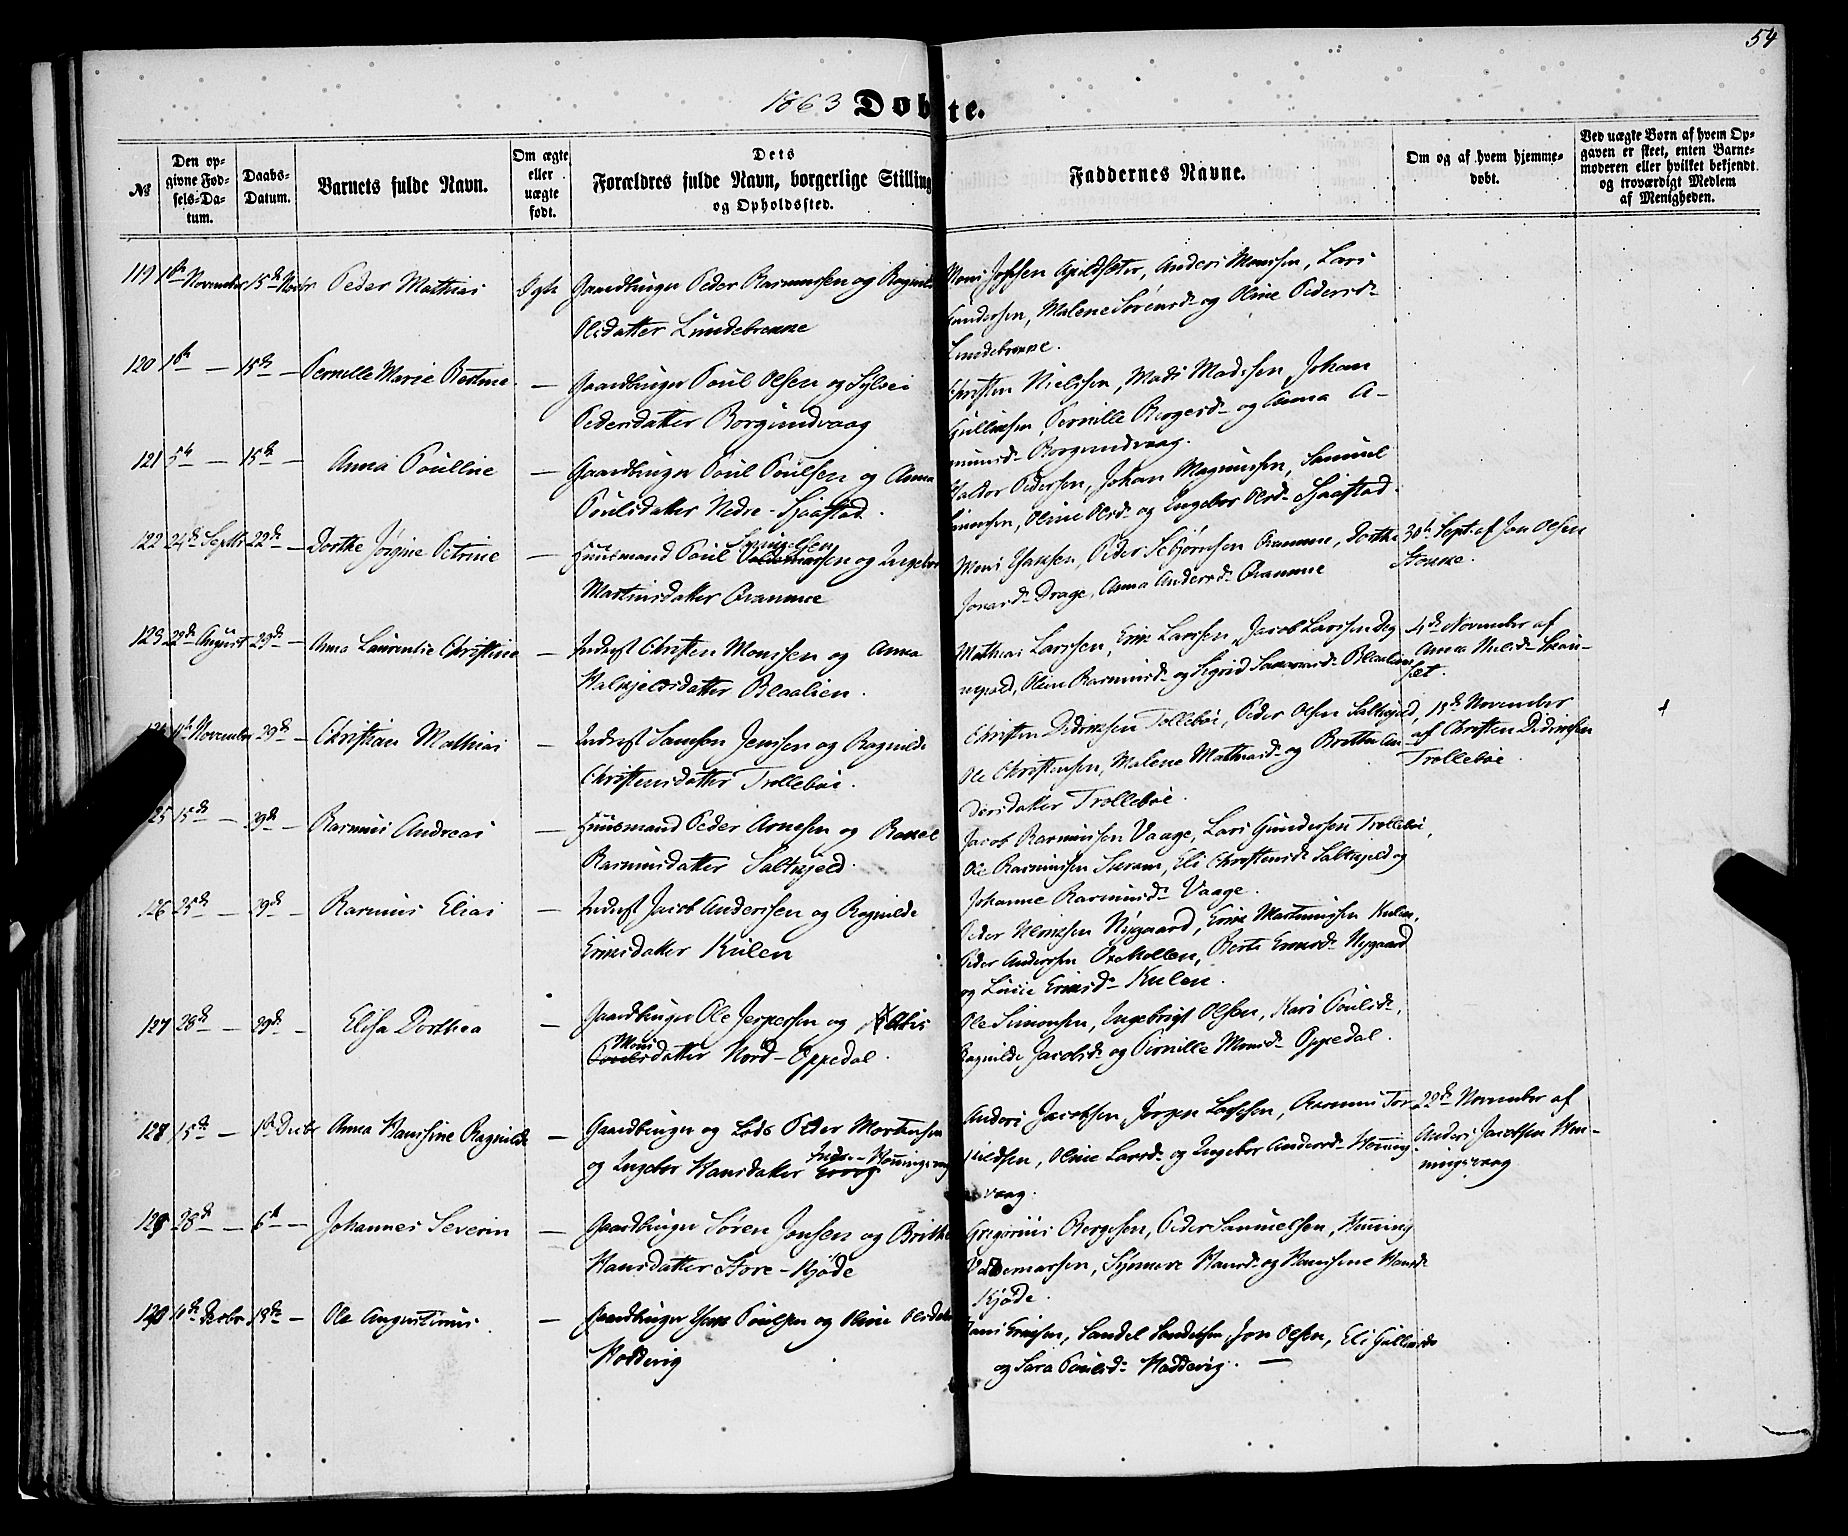 54
1863 Døbte.
№
Den opgivne Fødsels-Datum.
Daabs-Datum.
Barnets fulde Navn.
Om ægte eller uægte født.
Dets Forældres fulde Navn, borgerlige Stilling og Opholdssted.
Faddernes Navne.
Om og af hvem hjemmedøbt.
Ved uægte Børn af hvem Opgaven er skeet, enten Barnemoderen eller hvilket bekjendt og troværdigt Medlem af Menigheden.
119 1ste November 15de Novbr Peder Mathias Ægte Gaardbruger Peder Rasmussen og Ragnilde
Olsdatter Lundebrekke
Andersen, Malene Sørensd. og Oline Pedersd.
Lundebrekke.
120 1ste — 15de — Pernille Marie Bertine — Gaardbruger Poul Olsen og Sylvei
Pedersdatter Borgundvaag
Christen Nielssen, Mads Madssen, Johan
Gullaksen, Pernille Borgersd. og Anna A-
mundsd. Borgundvaag.
121 5te — 15de — Anna Poulline — Gaardbruger Poul Poulsen og Anna
Poulsdatter Nedre-Sjaastad.
Haldor Pedersen, Johan Magnussen, Samuel
Simonsen, Oline Olsd. og Ingebor Olsd. Sjaastad.
122 24de Septbr 22de — Dorthe Jørgine Petrine — Huusmand Poul og Ingebor
Martinsdatter Ramme
Mons Hansen, Peder Ramme, Dorthe
Jonasd. Drage, Anna Andersd. Ramme
30te Sept. af Jon Olsen
123 22de August 29de — Anna Laurentse Christine — Inderst Christen Monssen og Anna
Halkjelsdatter Blaalien.
Mathias Larssen, Erik Larssen, Jacob Larssen
Oline Rasmusd. og Sigrid Blaalien
4de November af
Anna
set.
November 29de Christian Mathias — Inderst Samson Jenssen og Ragnilde
Christensdatter Trollebøe.
Christen Didriksen Tollebøe, Peder Olsen Saltkjeld,
Ole Christensen, Malene Mathiasd. og Brithe An-
dersdatter Trollebøe.
15de November
af Christen Didriksen
Trollebøe.
125 15de — 29de — Rasmus Andreas — Huusmand Peder Arnesen og Rakel
Rasmusdatter Saltkjeld.
Jacob Rasmussen Vaage, Lars Gundersen Trollebøe,
Ole Rasmussen, Eli Christensd. Saltkjeld og
Johanne Rasmusd. Vaage.
126 25de — 29de — Rasmus Elias — Inderst Jacob Anderssen og Ragnilde
Eriksdatter Kulen
Peder Nygaard, Erik Martinussen Kulen,
Peder Anderssen Oxehollen, Berte Eriksd. Nygaard
og Lisie Eriksd. Kulen.
127 28de — 29de — Elisa Dorthea — Gaardbruger Ole Jespersen og
Monsdatter Nord-Oppedal.
Ole Simonsen, Ingebrigt Olsen, Kari Poulsd.,
Ragnilde Jacobsd. og Pernille Monsd. Oppedal.
128 15de — 1ste Decbr Anna Hansine Ragnilde — Gaardbruger og Lods Peder Mortensen
og Ingebor Hansdatter Indre-Honningsvaag
Anders Jacobsen, Jørgen, Rasmus Tor-
kildsen, Oline Larsd. og Ingebor Andersd. Honning-
svaag.
22de November af
Anders Jacobsen Hon-
ningsvaag
129 28de — 6te — Johannes Severin — Gaardbruger Søren Jonsen og Brithe
Hansdatter Store-Kjøde
Gregorius Børgesen, Peder Samuelsen, Henning
Valdemarsen, Synneve Hansd. og Hansine Hansd.
Kjøde.
130 10de Decbr 13de — Ole Augustinus — Gaardbruger Hans Poulsen og Oline Olsdatter
Hoddevig
Hans Eriksen, Sandel Sandelsen, Jon Olsen, Eli Gullaksd.
og Sara Poulsd. Hoddevig. —